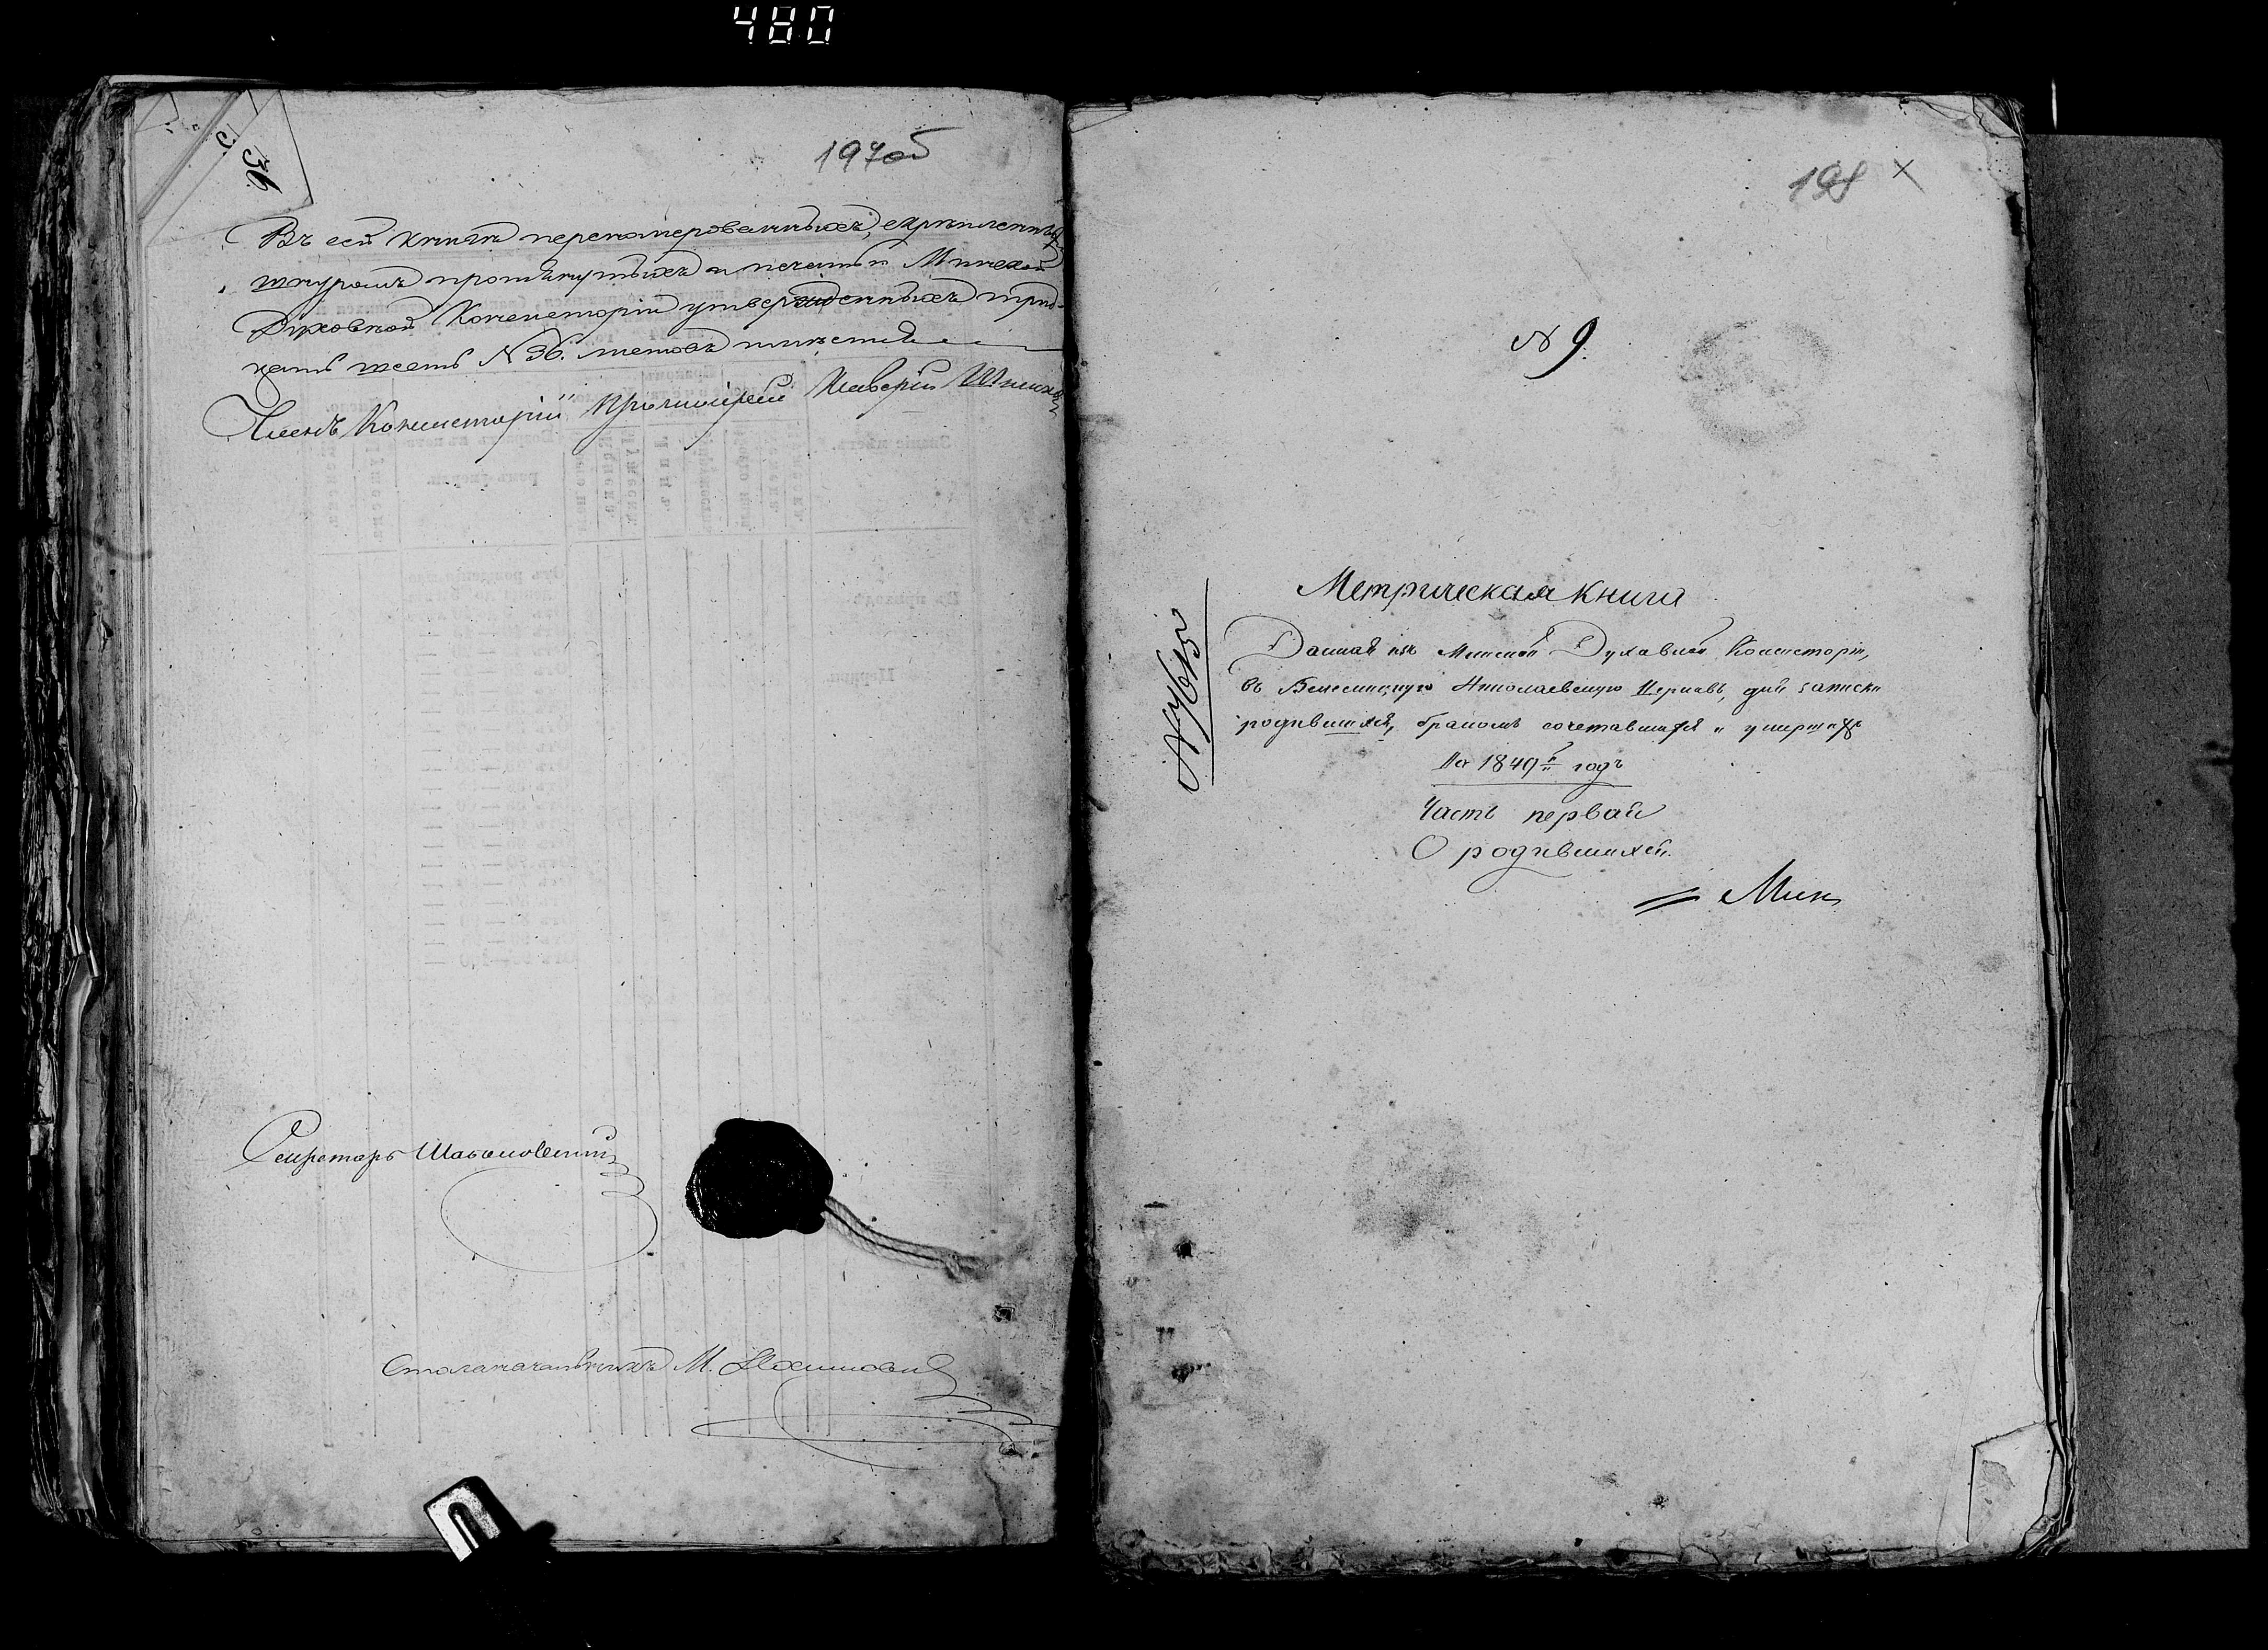 480
36
197об
Въ сей книгѣ перенумерованныхъ, скрѣпленныхъ
шнуромъ протянутыхъ и печатью Минской
Духовной Консисторіи утвержденныхъ трид-
цать шесть №36. листовъ
Членъ Консисторіи Протоіерей
Секретарь
Столоначальникъ М.
198 ×
№ 9.
№ 7615
Метрическая книга
Данная изъ Минской Духовной Консисторіи,
въ Николаевскую Церковь, для записки
родившихся, бракомъ сочетавшихся и умершихъ
На 1849й годъ
Часть первая
О родившихся.